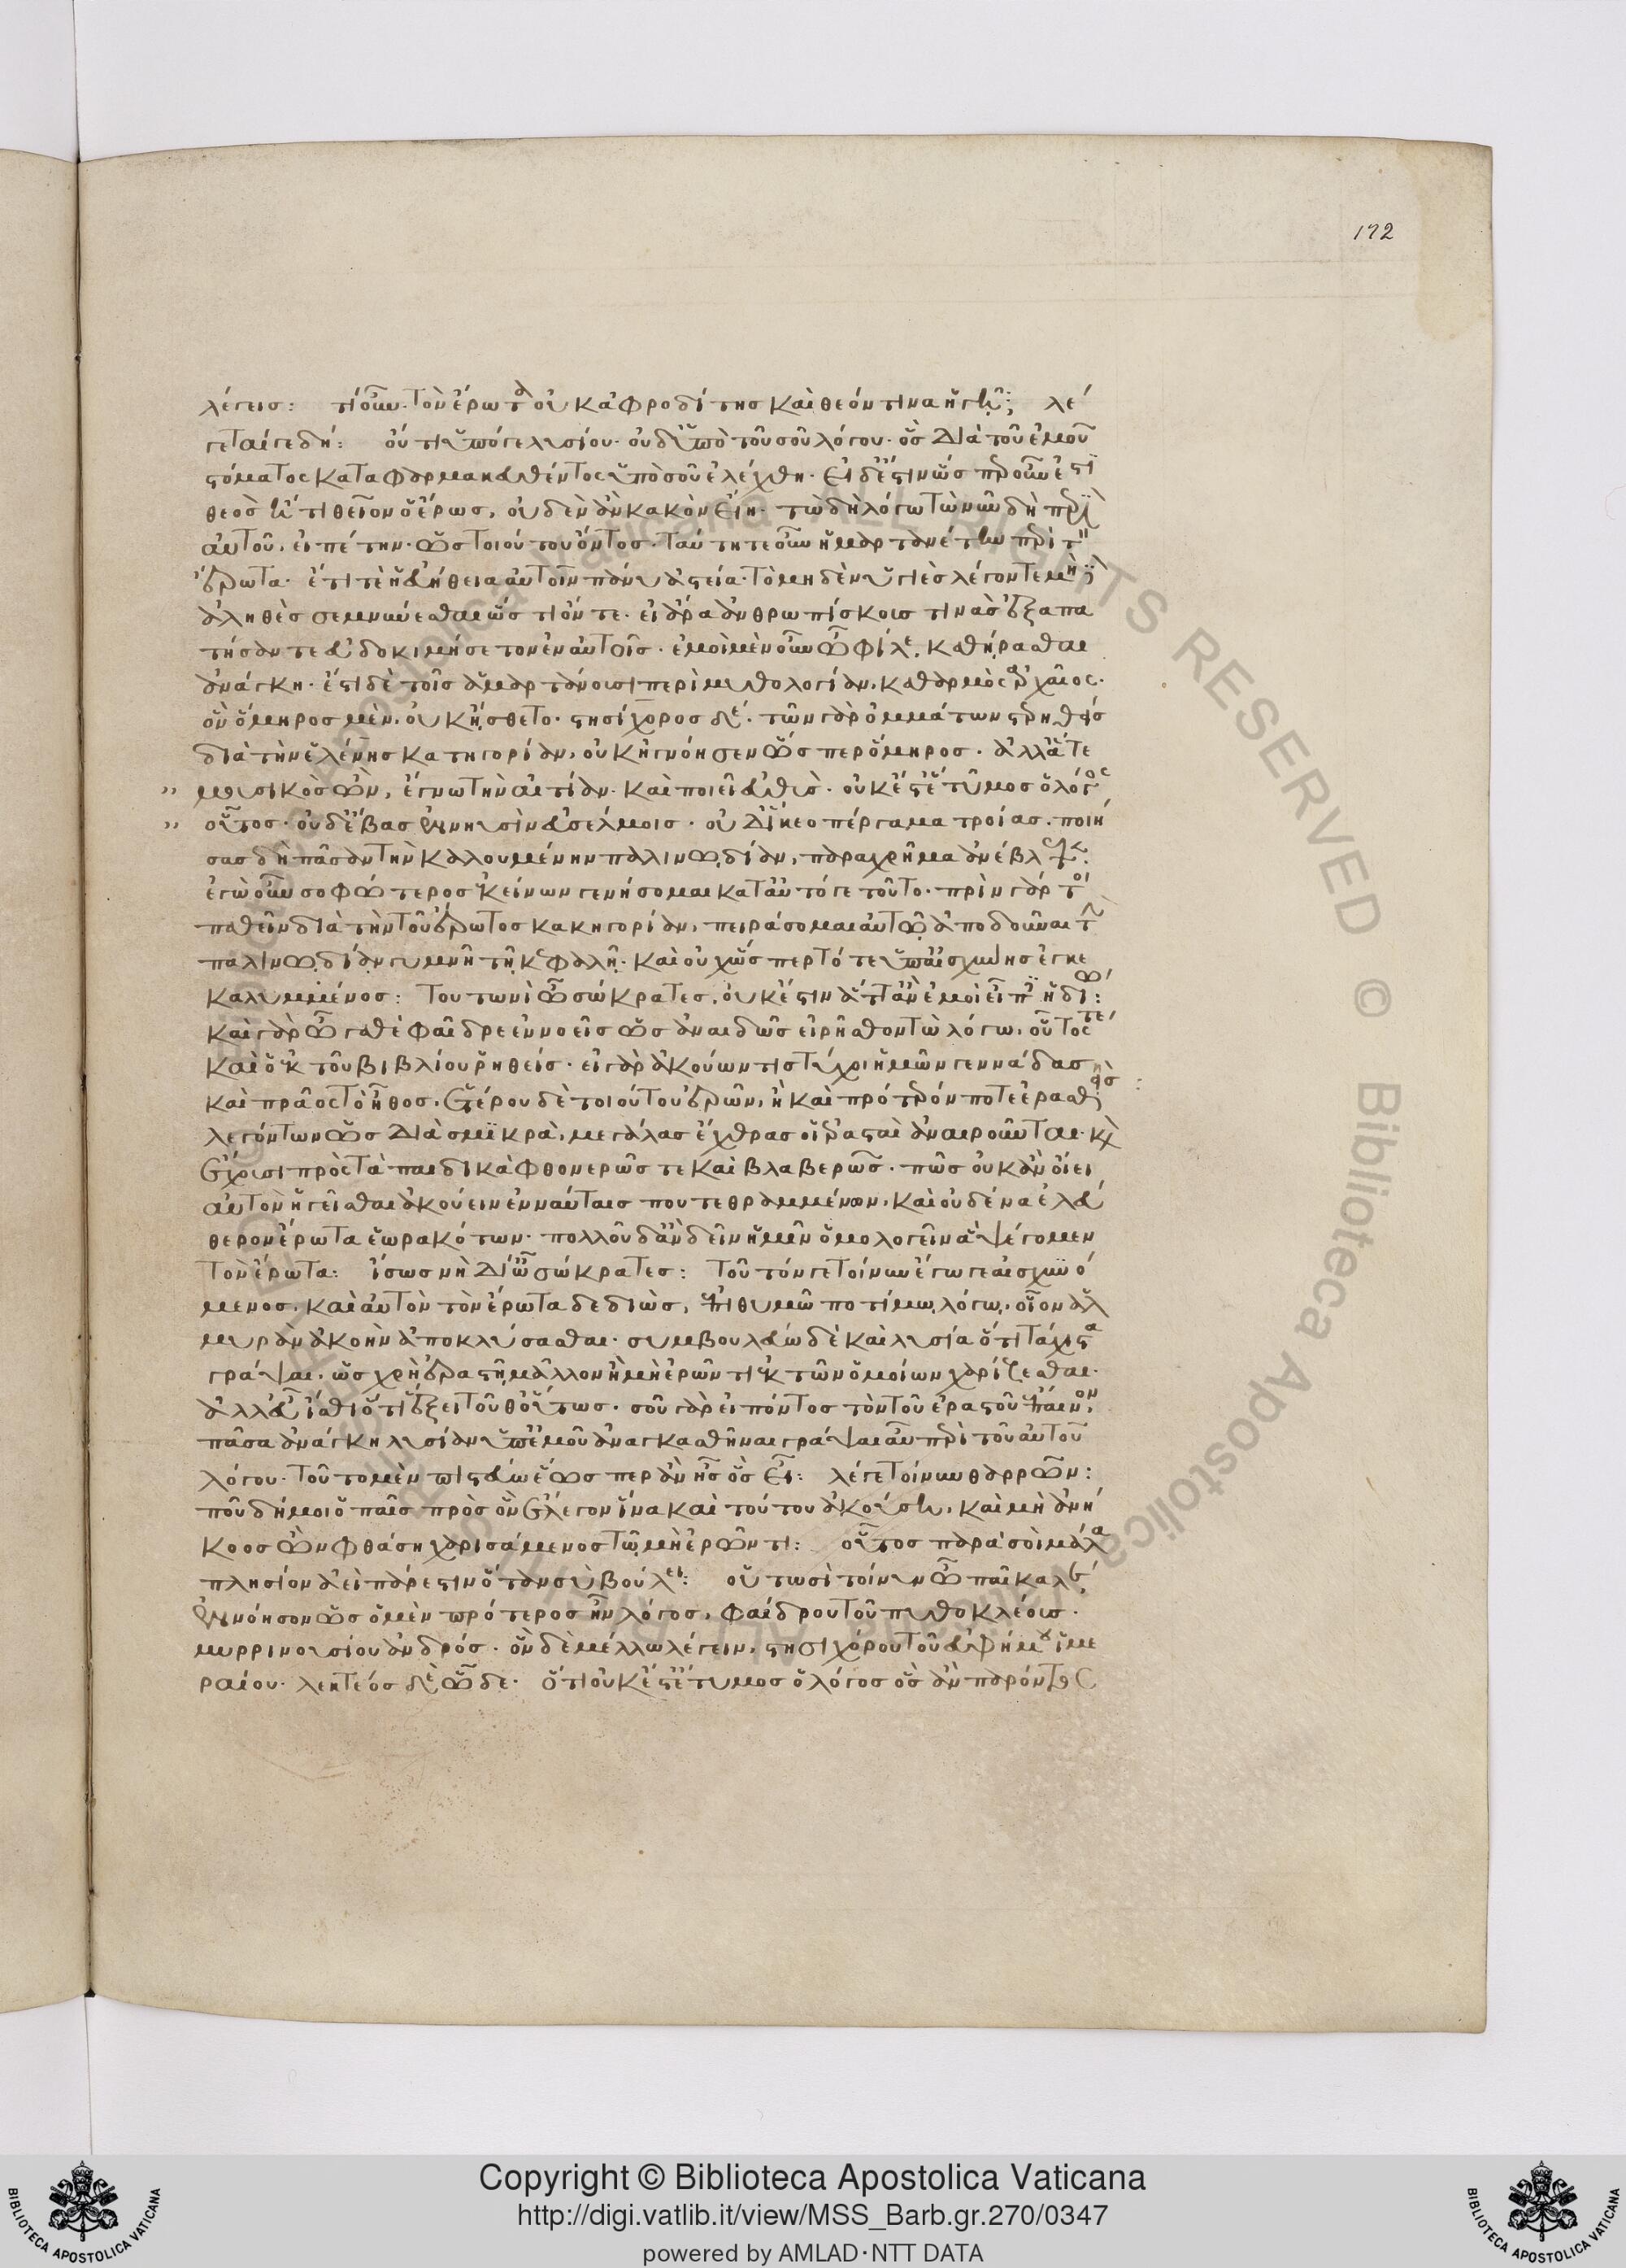 172
λέγεις: τί οὖν· τὸν ἔρωτα οὐκ ἀφροδίτης καὶ θεόν τινα ἡγῆι; λέ
γεταί γε δή: οὔ τι ὑπό γε λυσίου· οὐδ' ὑπὸ τοῦ σοῦ λόγου· ὃς διὰ τοῦ ἐμοῦ
στόματος καταφαρμακευθέντος ὑπὸ σοῦ ἐλέχθη· εἰ δ' ἔστιν ὥσπερ οὖν ἔστι
θεὸς ἤ τι θεῖον ὁ ἔρως, οὐδὲν ἂν κακὸν εἴη· τὼ δὴ λόγω τὼ νῦν δὴ περὶ
αὐτοῦ, εἰπέτην· ὡς τοιούτου ὄντος· ταύτῃ τε οὖν ἡμαρτανέτην περὶ τὸν
ἔρωτα· ἔτι τὲ ἡ εὐήθεια αὐτοῖν πάνυ ἀστεία· τὸ μηδὲν ὑγιὲς λέγοντε μηδὲ
ἀληθὲς σεμνύνεσθαι ὥς τι ὄντε· εἰ ἄρα ἀνθρωπίσκους τινὰς ἐξαπα
τήσαντε εὐδοκιμήσετον ἐν αὐτοῖς· ἐμοὶ μὲν οὖν ὦ φίλε, καθήρασθαι
ἀνάγκη· ἔστι δὲ τοῖς ἁμαρτάνουσι περὶ μυθολογίαν, καθαρμὸς ἀρχαῖος·
ὃν ὅμηρος μὲν, οὐκ ᾔσθετο· στησίχορος δέ· τῶν γὰρ ὀμμάτων στρηθεὶς
διὰ τὴν ἑλένης κατηγορίαν, οὐκ ἠγνόησεν ὥσπερ ὅμηρος· ἀλλ' ἅτε
μουσικὸς ὢν, ἔγνω τὴν αἰτίαν· καὶ ποιεῖ εὐθὺς· οὐκ ἔστ' ἔτυμος ὁ λόγος
οὗτος· οὐδ' ἔβας ἐν νηυσὶν εὐσέλμοις· οὐδ' ἵκεο πέργαμα τροίας. ποιή
σας δὴ πᾶσαν τὴν καλουμένην παλινῳδίαν, παραχρῆμα ἀνέβλεψε.
ἐγὼ οὖν σοφώτερος ἐκείνων γενήσομαι κατ' αὐτό γε τοῦτο· πρὶν γάρ τι
παθεῖν διὰ τὴν τοῦ ἔρωτος κακηγορίαν, πειράσομαι αὐτῷ ἀποδοῦναι τὴν
παλινῳδίαν γυμνῇ τῇ κεφαλῇ· καὶ οὐχ ὥσπερ τότε ὑπ' αἰσχύνης ἐγκε
καλυμμένος: τουτωνὶ ὦ σώκρατες, οὐκ ἔστιν ἅττ' ἂν ἐμοὶ εἶπες ἡδίω:
καὶ γὰρ ὦ 'γαθὲ φαῖδρε ἐννοεῖς ὡς ἀναιδῶς εἰρῆσθον τὼ λόγω, οὗτός τε
καὶ ὁ ἐκ τοῦ βιβλίου ῥηθείς· εἰ γὰρ ἀκούων τις τύχοι ἡμῶν γεννάδας
καὶ πρᾶος τὸ ἦθος, ἑτέρου δὲ τοιούτου ἐρῶν, ἢ καὶ πρότερόν ποτε ἐρασθεὶς
λεγόντων ὡς διὰ σμικρὰ, μεγάλας ἔχθρας οἱ ἐρασταὶ ἀναιροῦνται· καὶ
ἔχουσι πρὸς τὰ παιδικὰ φθονερῶς τε καὶ βλαβερῶς· πῶς οὐκ ἂν οἴει
αὐτὸν ἡγεῖσθαι ἀκούειν ἐν ναύταις που τεθραμμένων, καὶ οὐδένα ἐλεύ
θερον ἔρωτα ἑωρακότων· πολλοῦ δ' ἂν δεῖν ἡμῖν ὁμολογεῖν ἃ ψέγομεν
τὸν ἔρωτα: ἴσως νὴ δί' ὦ σώκρατες: τοῦτόν γε τοίνυν ἔγωγε αἰσχυνό
μενος, καὶ αὐτὸν τὸν ἔρωτα δεδιὼς, ἐπιθυμῶ ποτίμῳ λόγῳ, οἷον ἁλ
μυρὰν ἀκοὴν ἀποκλύσασθαι· συμβουλεύω δὲ καὶ λυσίᾳ ὅτι τάχιστα
γράψαι, ὡς χρὴ ἐραστῇ μᾶλλον ἢ μὴ ἐρῶντι ἐκ τῶν ὁμοίων χαρίζεσθαι·
ἀλλ' εὖ ἴσθι ὅτι ἕξει τοῦθ' οὕτως· σοῦ γὰρ εἰπόντος τὸν τοῦ ἐραστοῦ ἔπαινον,
πᾶσα ἀνάγκη λυσίαν ὑπ' ἐμοῦ ἀναγκασθῆναι γράψαι αὖ περὶ τοῦ αὐτοῦ
λόγου· τοῦτο μὲν πιστεύω ἕωσπερ ἂν ᾖς ὃς εἶ: λέγε τοίνυν θαρρῶν:
ποῦ δή μοι ὁ παῖς πρὸς ὃν ἔλεγον ἵνα καὶ τούτου ἀκούσῃ, καὶ μὴ ἀνή
κοος ὢν φθάσῃ χαρισάμενος τῷ μὴ ἐρῶντι: οὗτος παρά σοι μάλα
πλησίον ἀεὶ πάρεστιν ὅταν σὺ βούλει: οὑτωσὶ τοίνυν ὦ παῖ καλὲ,
ἐννόησον ὡς ὁ μὲν πρότερος ἦν λόγος, φαίδρου τοῦ πυθοκλέους·
μυρρινουσίου ἀνδρός· ὃν δὲ μέλλω λέγειν, στησιχόρου τοῦ εὐφήμου ἱμε
ραίου· λεκτέος δὲ ὧδε· ὅτι οὐκ ἔστ' ἔτυμος ὁ λόγος ὃς ἂν παρόντος
Copyright © Biblioteca Apostolica Vaticana
http://digi.vatlib.it/view/MSS_Barb.gr.270/0347
powered by AMLAD·NTT DATA